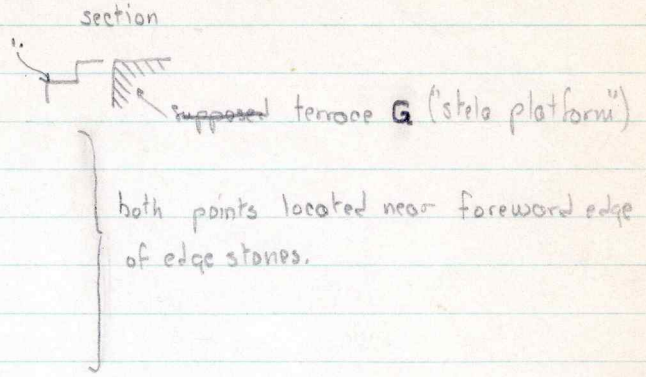 section
supposed terrace G ("stela platform")
both points located near foreword edge
of edge stones.